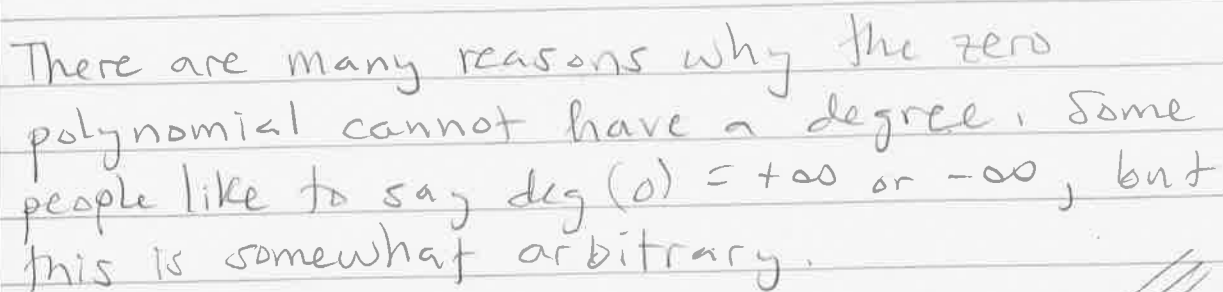 There are many reasons why the zero
polynomial cannot have a degree. Some
people like to say deg(0) = +∞ or -∞, but
this is somewhat arbitrary.